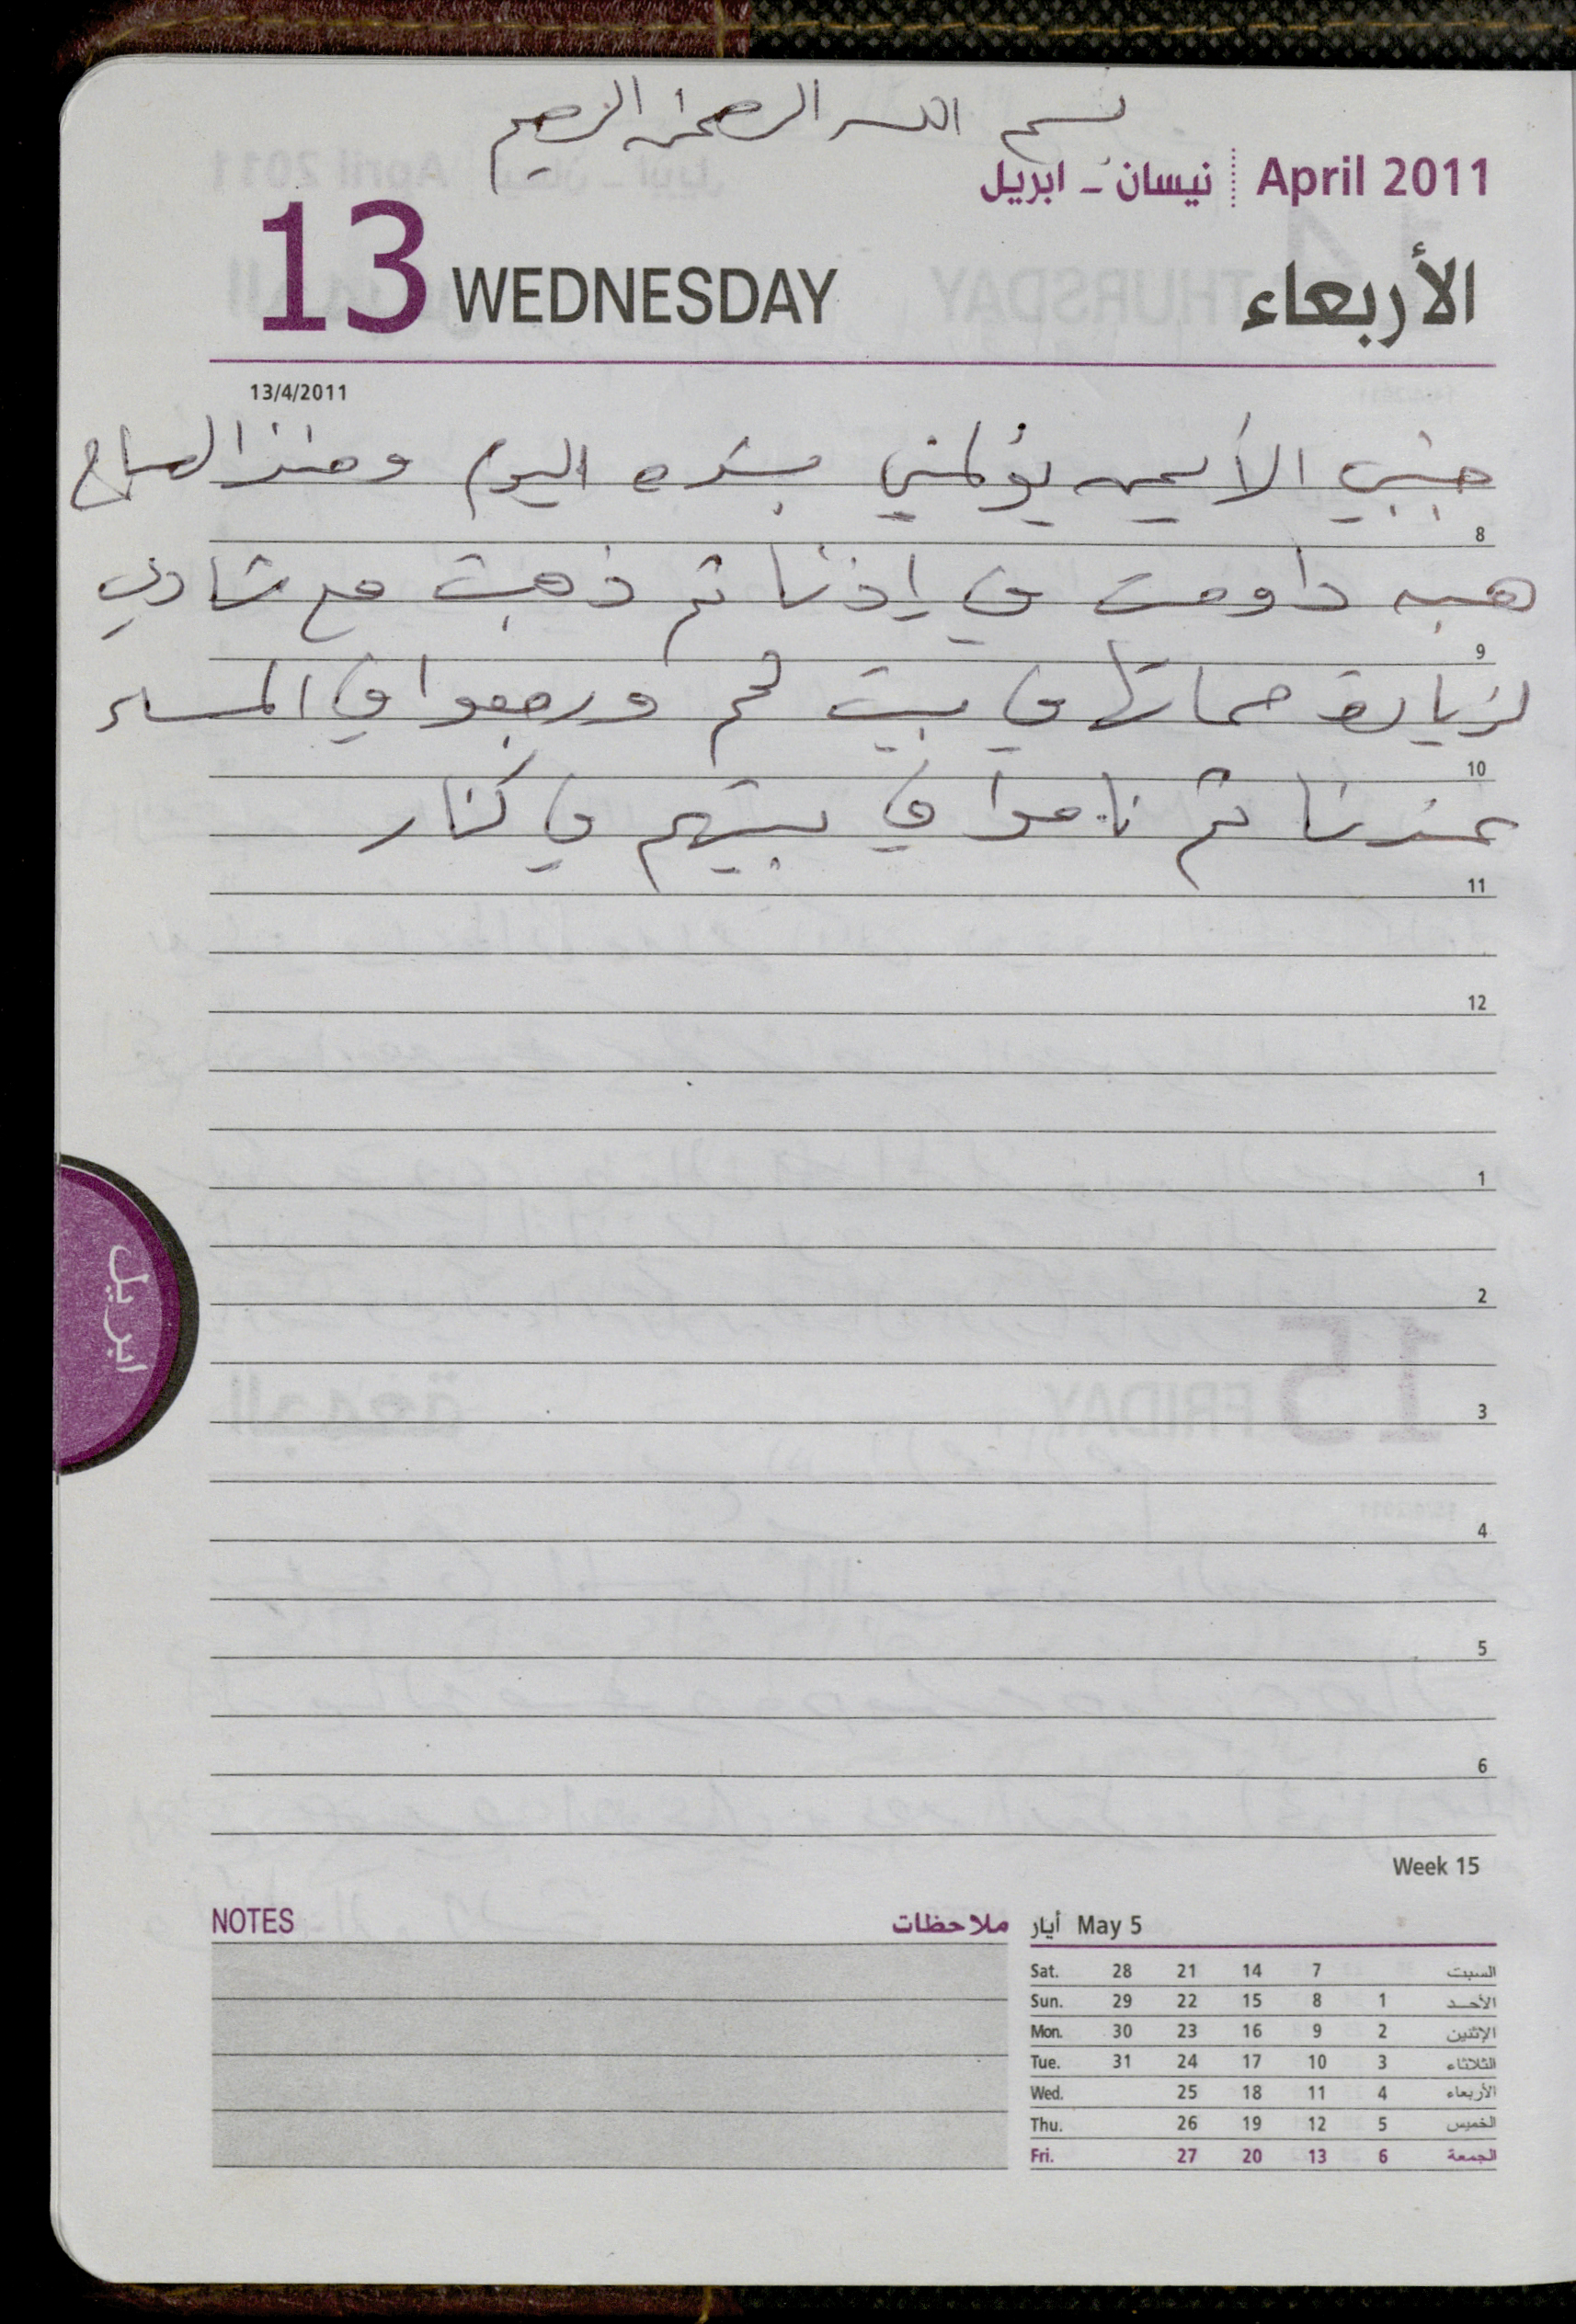 بسم الله الرحمن الرحيم
April 2011 نيسان - ابريل
13 WEDNESDAY الأربعاء
13/4/2011
جنبي الأيمن يؤلمني بشده اليوم ومنذ الصباح
8
هبه داومت في إذنا ثم ذهبت مع شادي
9
لزيارة حماتها في بيت لحم ورجعوا في المساء
10
عندنا ثم ناموا في بيتهم في كنار
11
12
1
2
ابريل
3
4
5
6
Week 15
NOTES ملاحظات
أيار May 5
Sat. 28 21 14 7 السبت
Sun. 29 22 15 8 1 الأحد
Mon. 30 23 16 9 2 الإثنين
Tue. 31 24 17 10 3 الثلاثاء
Wed. 25 18 11 4 الأربعاء
Thu. 26 19 12 5 الخميس
Fri. 27 20 13 6 الجمعة